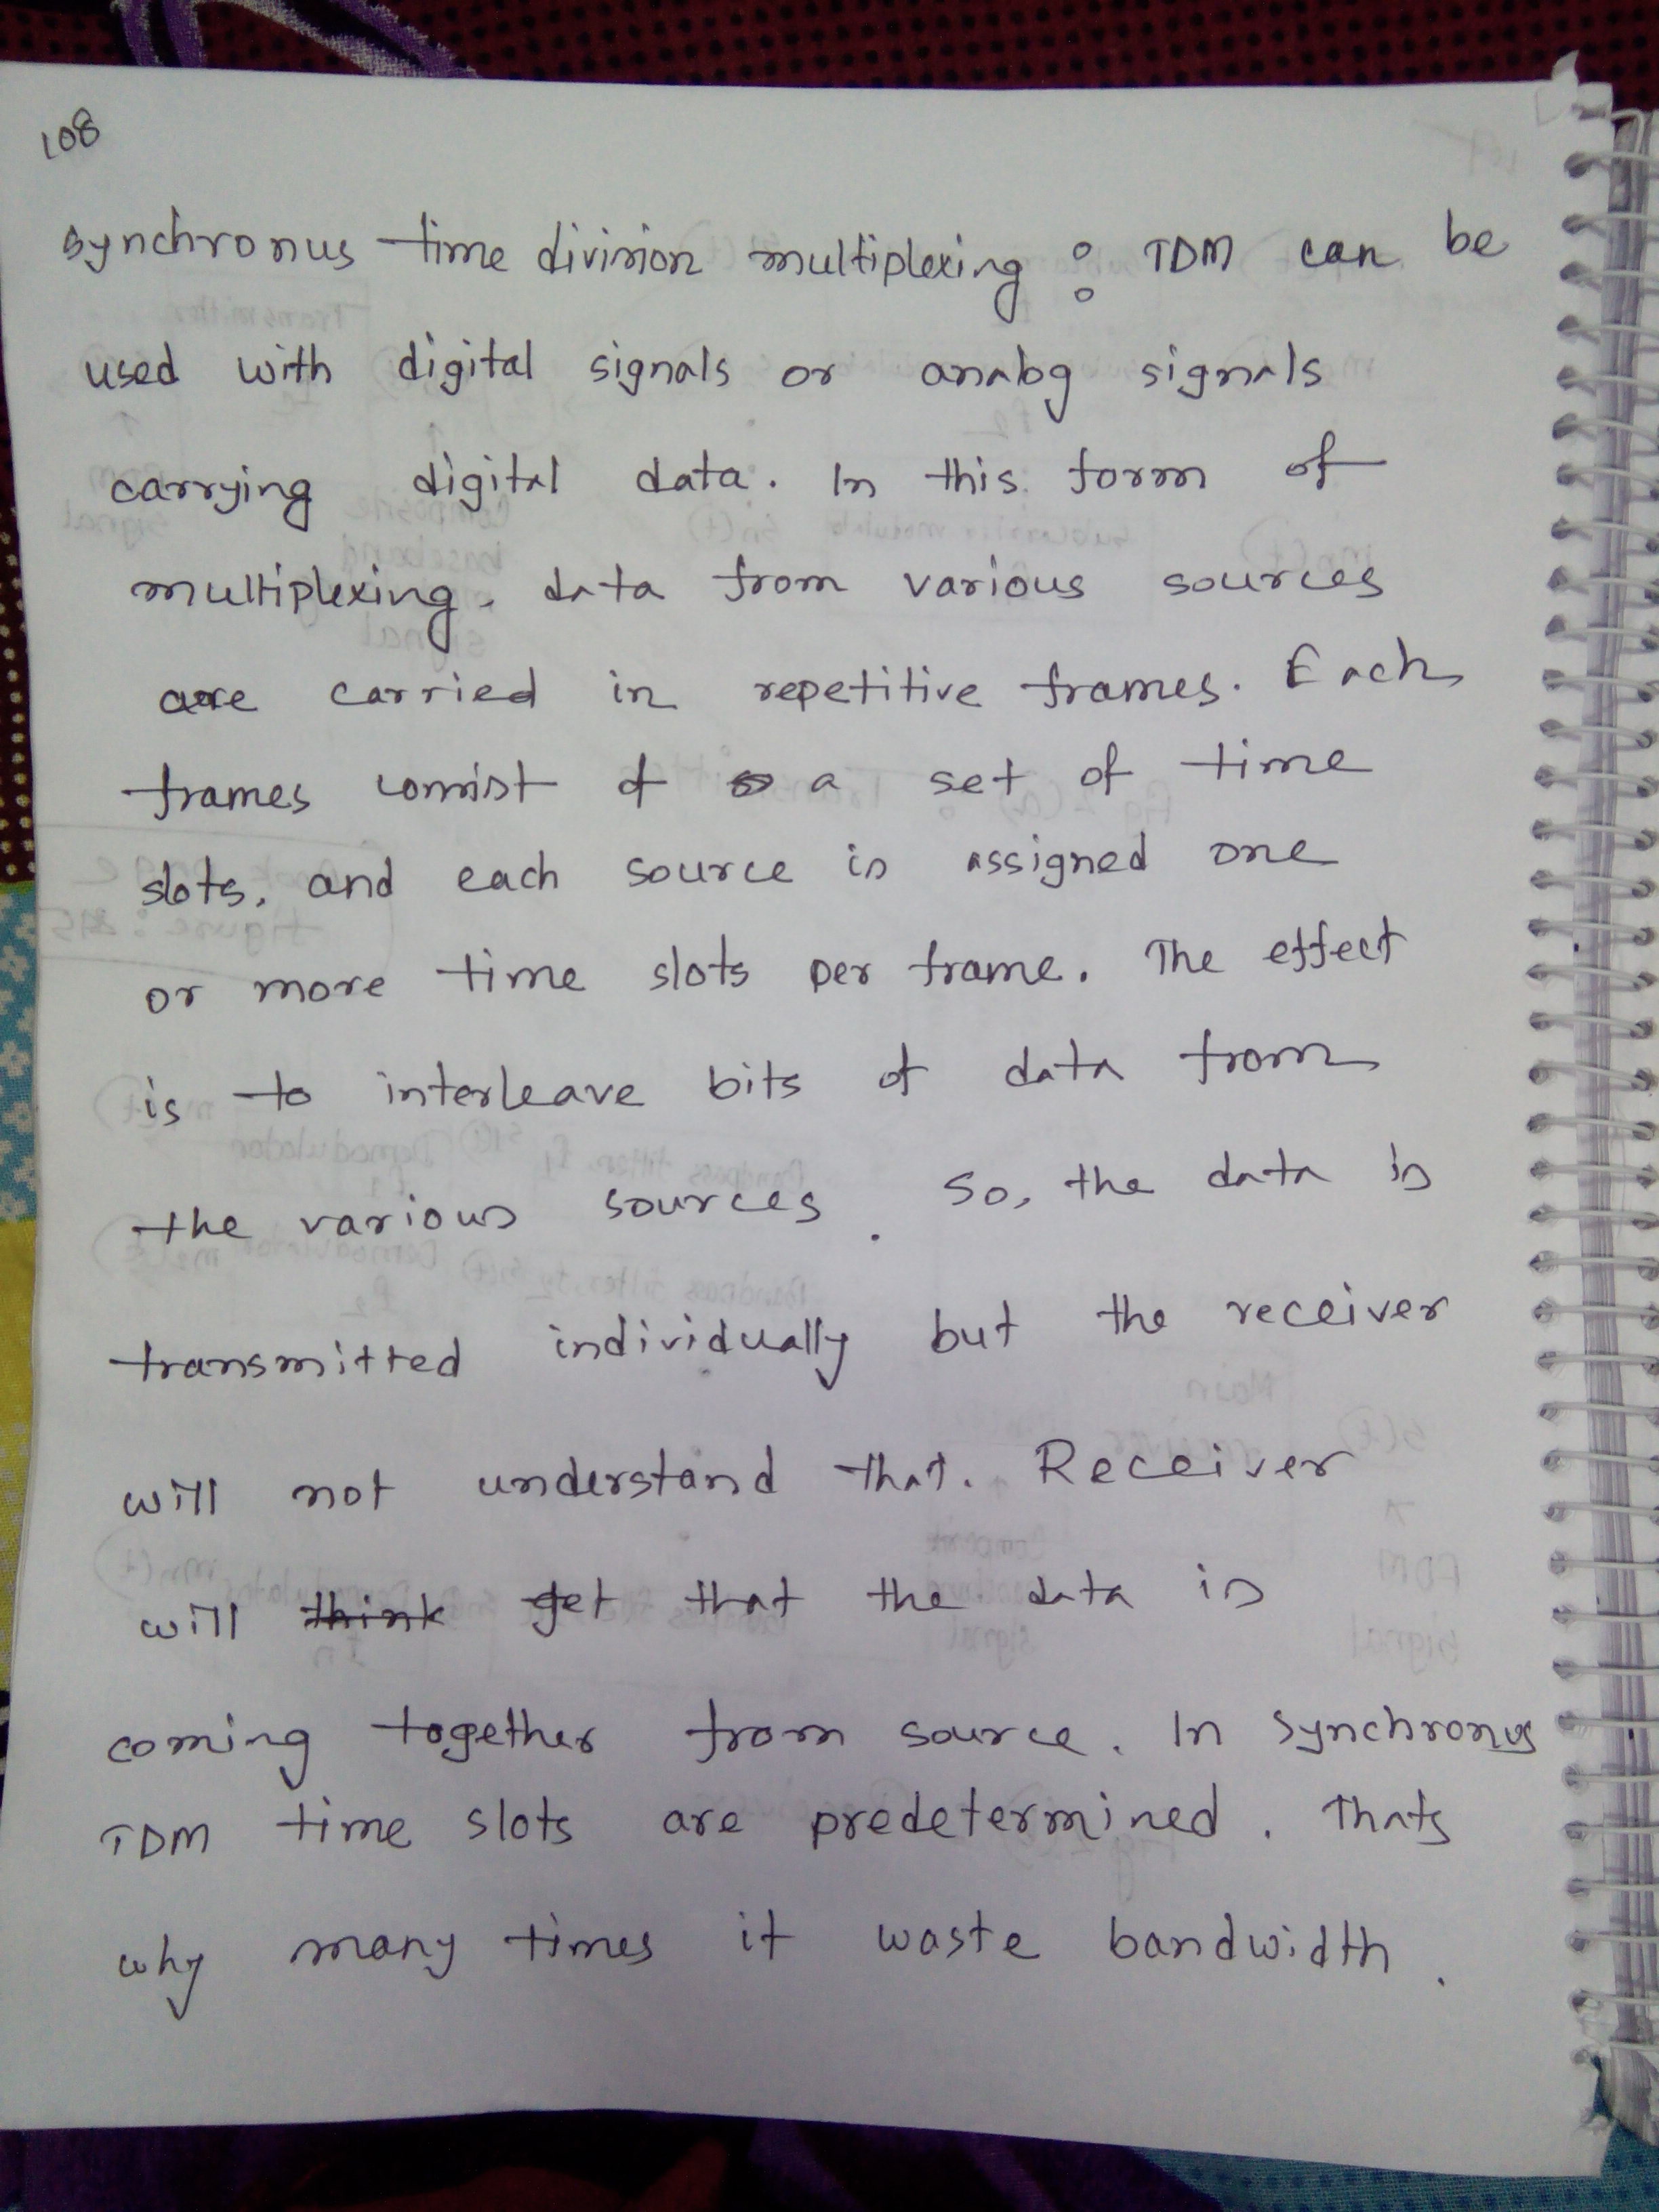 108
synchronus time division multiplexing : TDM can be
used with digital signals or analog signals
carrying digital data. In this form of
multiplexing, data from various sources
are carried in repetitive frames. Each
frames consist of a set of time
slots, and each source is assigned one
or more time slots per frame. The effect
is to interleave bits of data from
the various sources. So, the data is
transmitted individually but the receiver
will not understand that. Receiver
will think get that the data is
coming together from source. In synchronus
TDM time slots are predetermined. Thats
why many times it waste bandwidth.